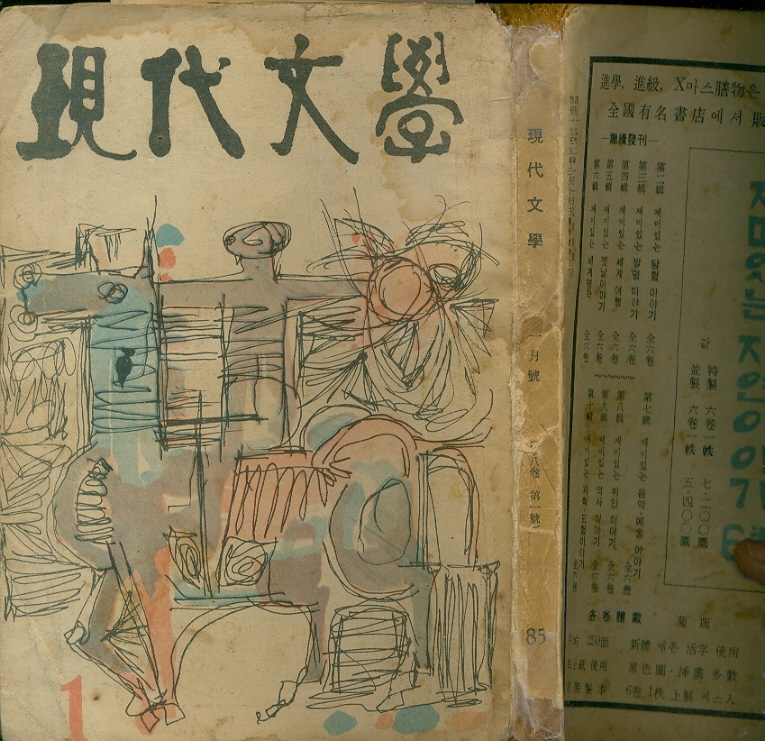 現代文學
1
現代文學
一月號
第八卷 第一號
85
進學, 進級, X마스膳物은
全國有名書店에서 販
―繼續發刊―
第二輯 재미있는 탐험 이야기 全六卷
第三輯 재미있는 발명 이야기 全六卷
第四輯 재미있는 세계 여행 全六卷
第五輯 재미있는 옛날이야기 全六卷
第六輯 재미있는 세계명작 全六卷
第七輯 재미있는 음악·예술 이야기 全六卷
第八輯 재미있는 위인 이야기 全六卷
第九輯 재미있는 역사 이야기 全六卷
第十輯 재미있는 과학·모험이야기 全六卷
값 特製 六卷一帙 七·二〇〇圜
並製 六卷一帙 五·四〇〇圜
재미있는 자연이야기
6
各卷體裁
菊版
250面
新體 새 活字 使用
上紙 使用
原色圖·揷畵 多數
6卷 1帙 上製 케스入